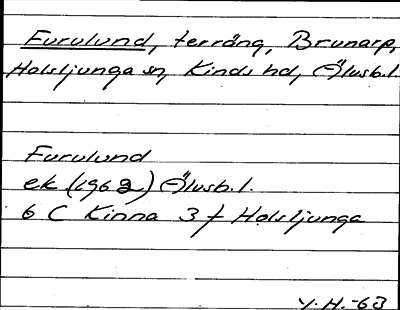 Furulund, terräng, Brunarp,
Holsljunga sn, Kinds hd, Älvsb.l.
Furulund
ek (1962) Älvsb.l.
6 C Kinna 3 f Holsljunga
Y.H.-63